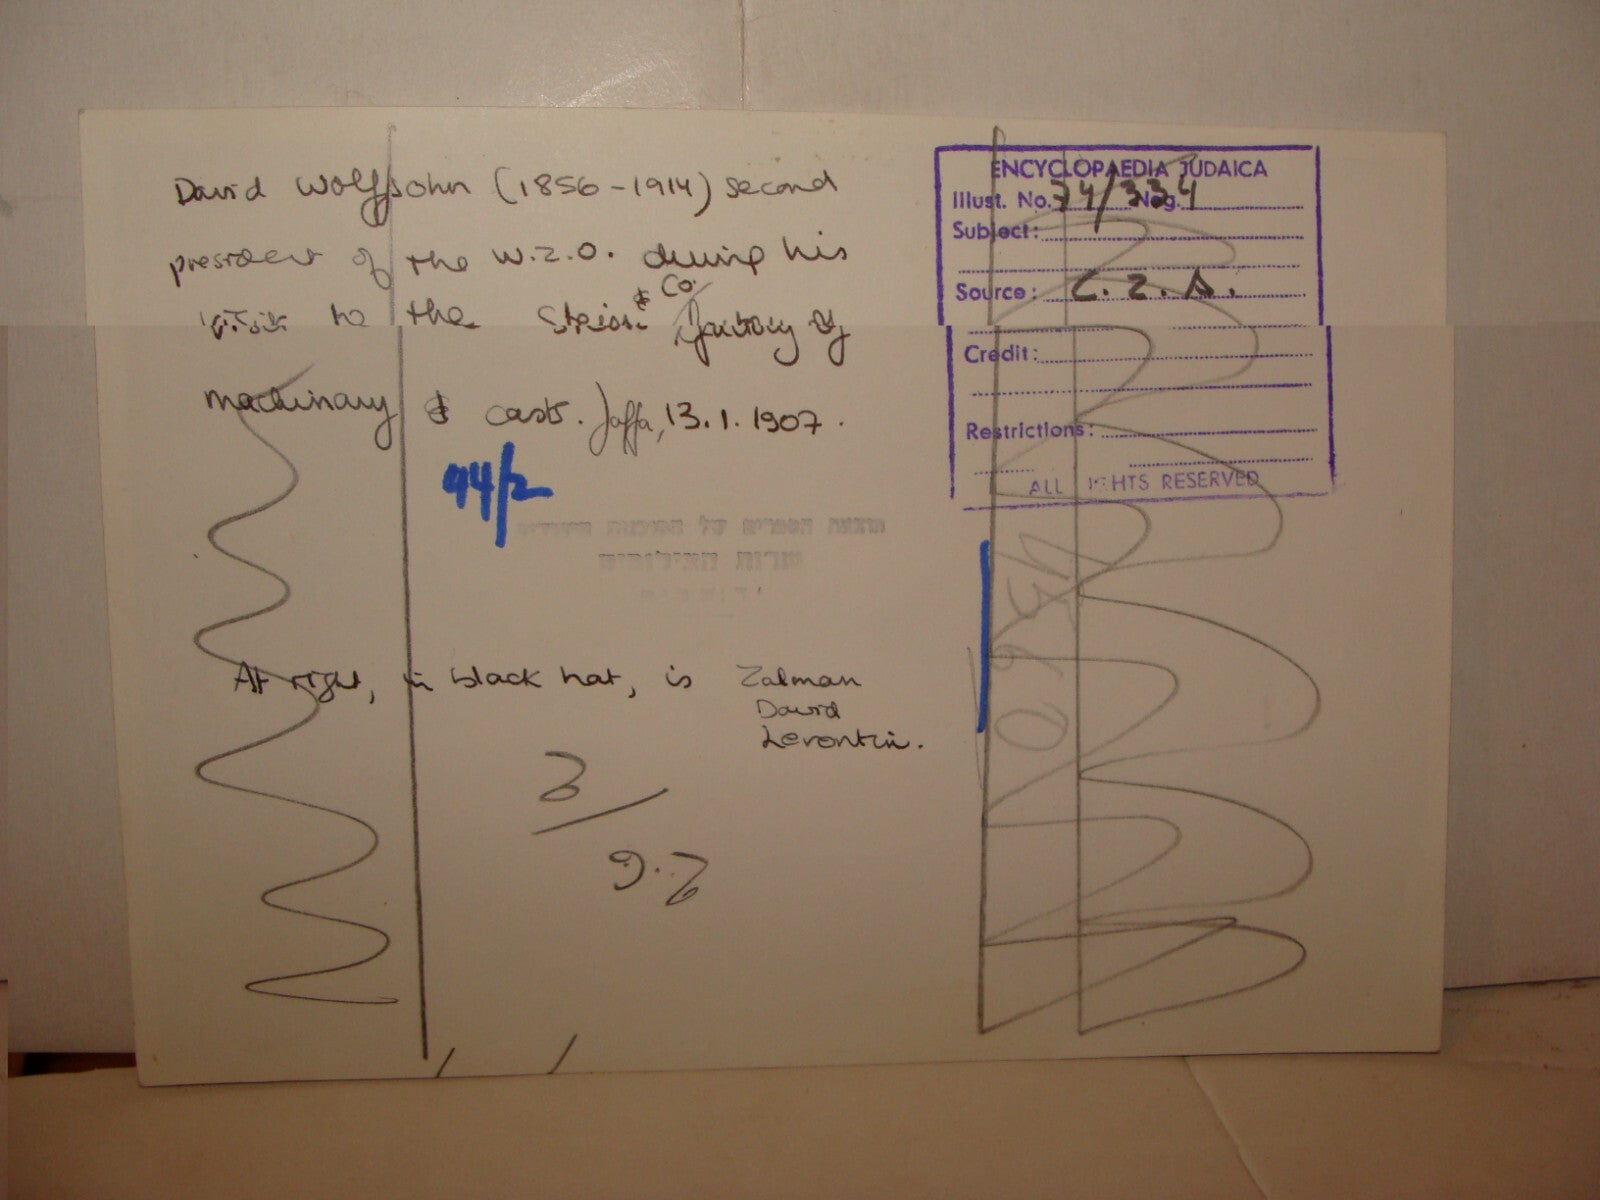 David Wolffsohn (1856-1914) second
president of the W.Z.O. during his
visit to the & Co. factory of
machinary & casts. Jaffa, 13.1.1907.
44/2
ENCYCLOPAEDIA JUDAICA
Illust. No. 74/334 Neg.
Subject:
Source: C.Z.A.
Credit:
Restrictions:
ALL RIGHTS RESERVED
הוצאת הספרים של
שרות
4560
At right, in black hat, is Zalman
David
Levontin.
3/
9.7